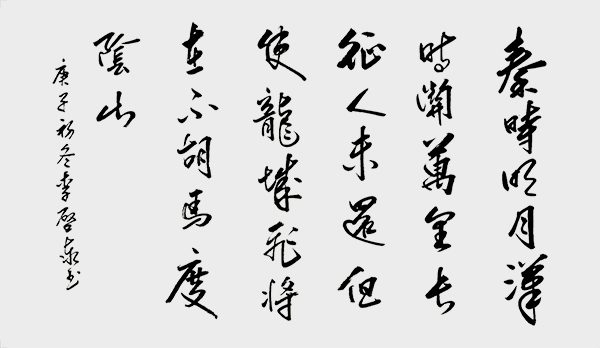 秦時明月漢
時關萬里長
征人未還但
使龍城飛將
在不胡馬度
陰山
庚子初冬李啓書